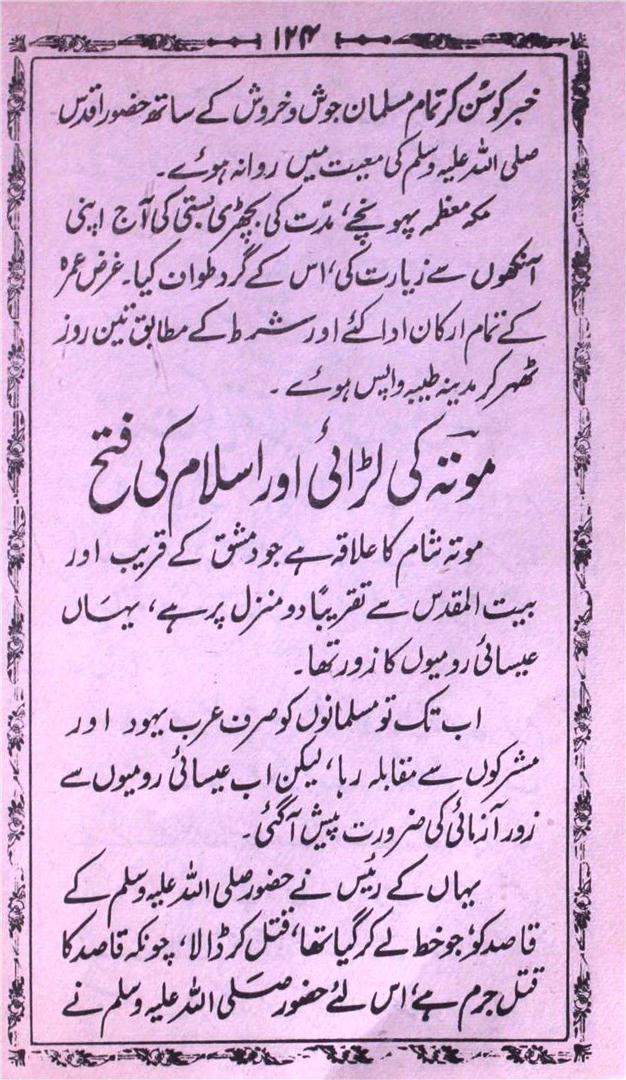 ۱۲۴
خبر کو سُن کر تمام مسلمان جوش و خروش کے ساتھ حضور اقدس
صلی اللہ علیہ وسلم کی معیت میں روانہ ہوئے۔
مکہ معظمہ پہونچے، مدّت کی بچھڑی بستی کی آج اپنی
آنکھوں سے زیارت کی، اس کے گرد طواف کیا۔ غرض عمرہ
کے تمام ارکان ادا کئے اور شرط کے مطابق تین روز
ٹھہر کر مدینہ طیبہ واپس ہوئے۔
موتہ کی لڑائی اور اسلام کی فتح
موتہ شام کا علاقہ ہے جو دمشق کے قریب اور
بیت المقدس سے تقریبًا دو منزل پر ہے، یہاں
عیسائی رومیوں کا زور تھا۔
اب تک تو مسلمانوں کو صرف عرب یہود اور
مشرکوں سے مقابلہ رہا، لیکن اب عیسائی رومیوں سے
زور آزمائی کی ضرورت پیش آگئی۔
یہاں کے رئیس نے حضور صلی اللہ علیہ وسلم کے
قاصد کو، جو خط لے کر گیا تھا، قتل کر ڈالا، چونکہ قاصد کا
قتل جرم ہے، اس لئے حضور صلی اللہ علیہ وسلم نے